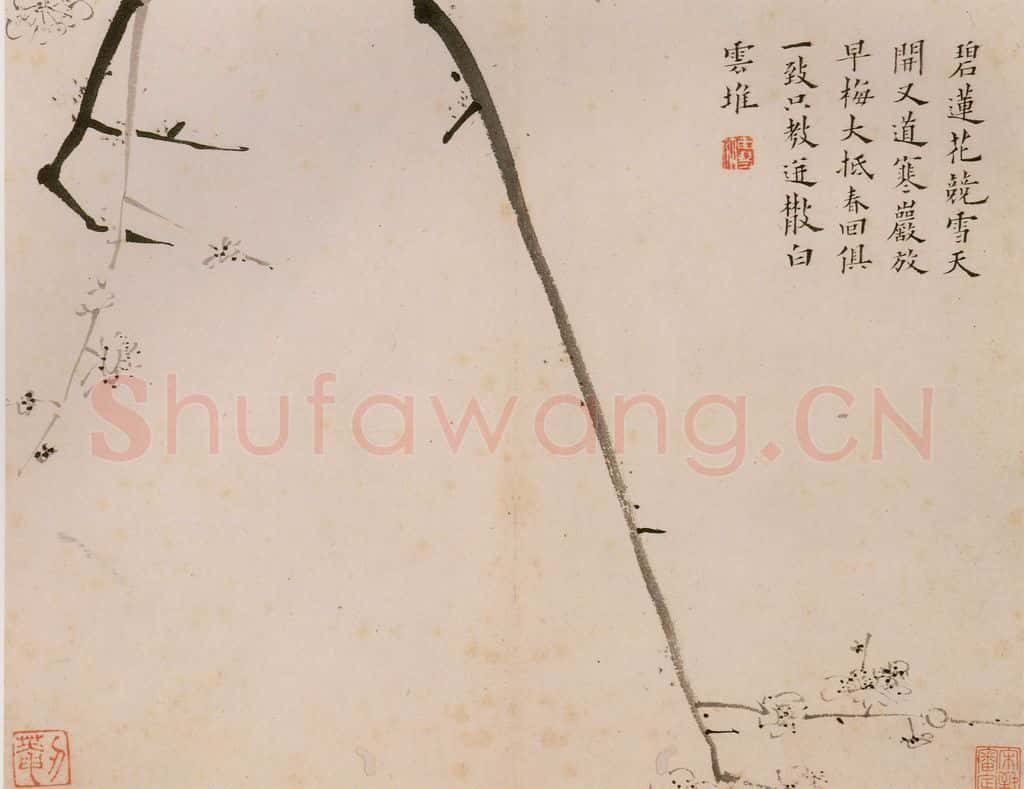 碧蓮花競雪天
開又道寒巖放
早梅大抵春回俱
一致只教迸散白
雲堆
Shufawang.CN